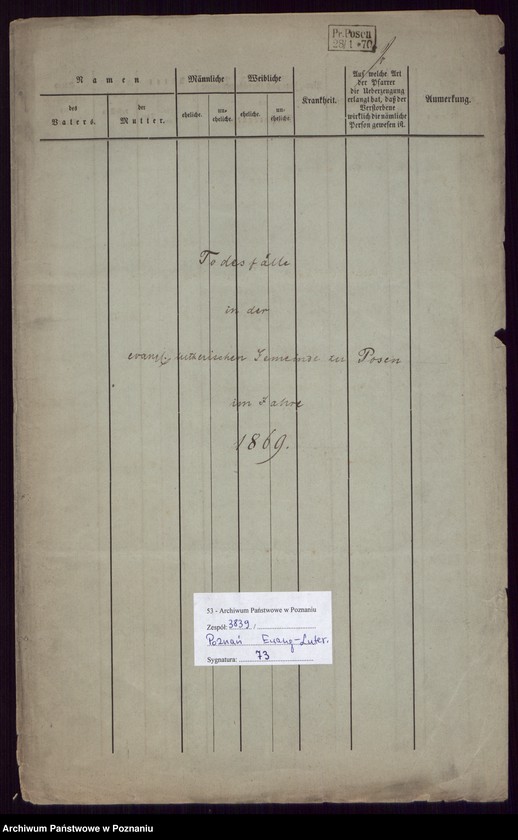 Pr. Posen
28/1 *70
Namen
des Vaters.
der Mutter.
Männliche
eheliche.
un-
eheliche.
Weibliche
eheliche.
un-
eheliche
Krankheit.
Auf welche Art
der Pfarrer
die Ueberzeugung
erlangt hat, daß der
Verstorbene
wirklich die nämliche
Person gewesen ist.
Anmerkung.
Todesfälle
in der
evangl. lutherischen Gemeinde zu Posen
im Jahre
1869.
53 - Archiwum Państwowe w Poznaniu
Zespół: 3839,
Poznań Ewang-Luter.
Sygnatura: 73
Archiwum Państwowe w Poznaniu